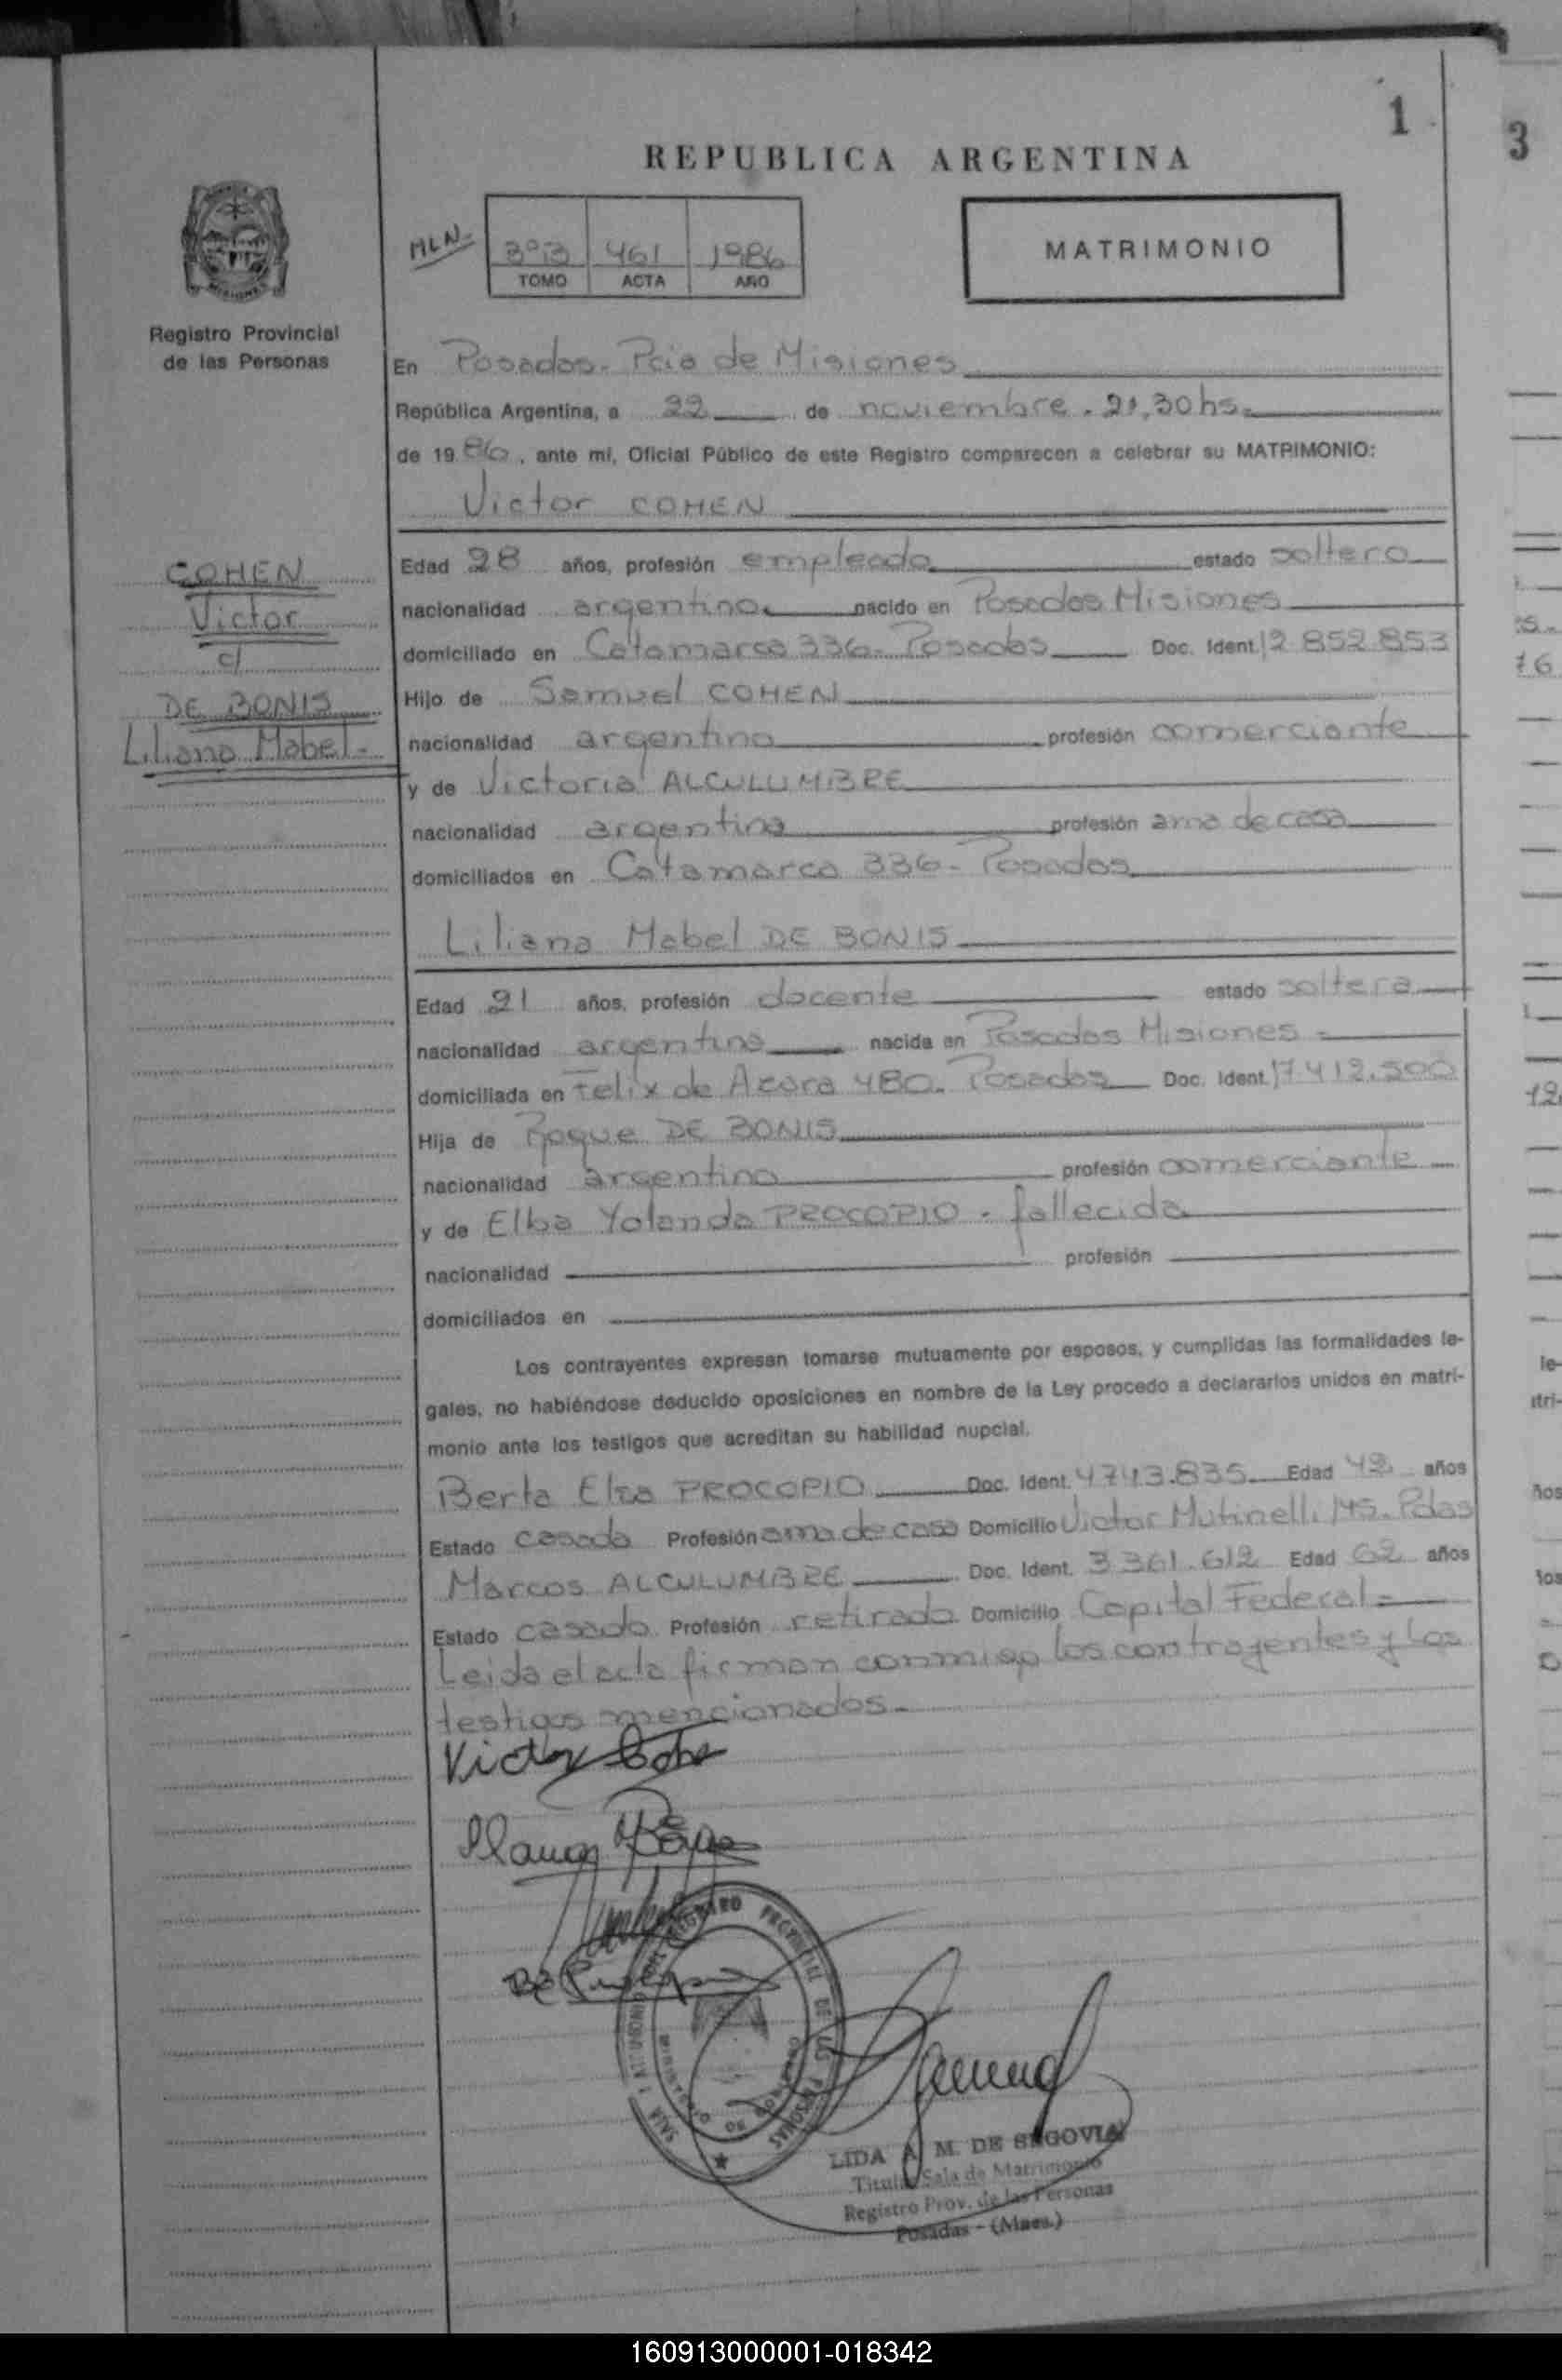 1
3
REPUBLICA ARGENTINA
MLN.
461 1986
TOMO ACTA AÑO
MATRIMONIO
Registro Provincial
de las Personas
En Posadas. Pcia de Misiones
República Argentina, a 22 de noviembre. 21,30hs.
de 1986, ante mí, Oficial Público de este Registro comparecen a celebrar su MATRIMONIO:
Victor COHEN
COHEN
Victor
c/
DE BONIS
Liliana Mabel.-
Edad 28 años, profesión empleado estado soltero
nacionalidad argentino. nacido en Posadas Misiones
domiciliado en Catamarca 336. Posadas Doc. Ident. 12.852.853
Hijo de Samuel COHEN
nacionalidad argentino profesión comerciante
y de Victoria ALCULUMBRE
nacionalidad argentina profesión ama de casa
domiciliados en Catamarca 336 - Posadas
Liliana Mabel DE BONIS
Edad 21 años, profesión docente estado soltera
nacionalidad argentina nacida en Posadas Misiones -
domiciliada en Felix de Azara 480. Posadas Doc. Ident. 17.412.500
Hija de Roque DE BONIS
nacionalidad argentino profesión comerciante
y de Elba Yolanda PROCOPIO - fallecida
nacionalidad profesión
domiciliados en
Los contrayentes expresan tomarse mutuamente por esposos, y cumplidas las formalidades le-
gales, no habiéndose deducido oposiciones en nombre de la Ley procedo a declararlos unidos en matri-
monio ante los testigos que acreditan su habilidad nupcial.
Berta Elsa PROCOPIO Doc. Ident. 4743.835 Edad 42 años
Estado casada Profesión ama de casa Domicilio Victor Mutinelli 145. Pdas
Marcos ALCULUMBRE Doc. Ident. 3.361.612 Edad 62 años
Estado casado Profesión retirado Domicilio Capital Federal -
Leida el acta firman conmigo los contrayentes y los
testigos mencionados.
Victor Cohe
REGISTRO PROVINCIAL DE LAS PERSONAS
LIDA A. M. DE SEGOVIA
Titular Sala de Matrimonio
Registro Prov. de las Personas
Posadas - (Mnes.)
160913000001-018342